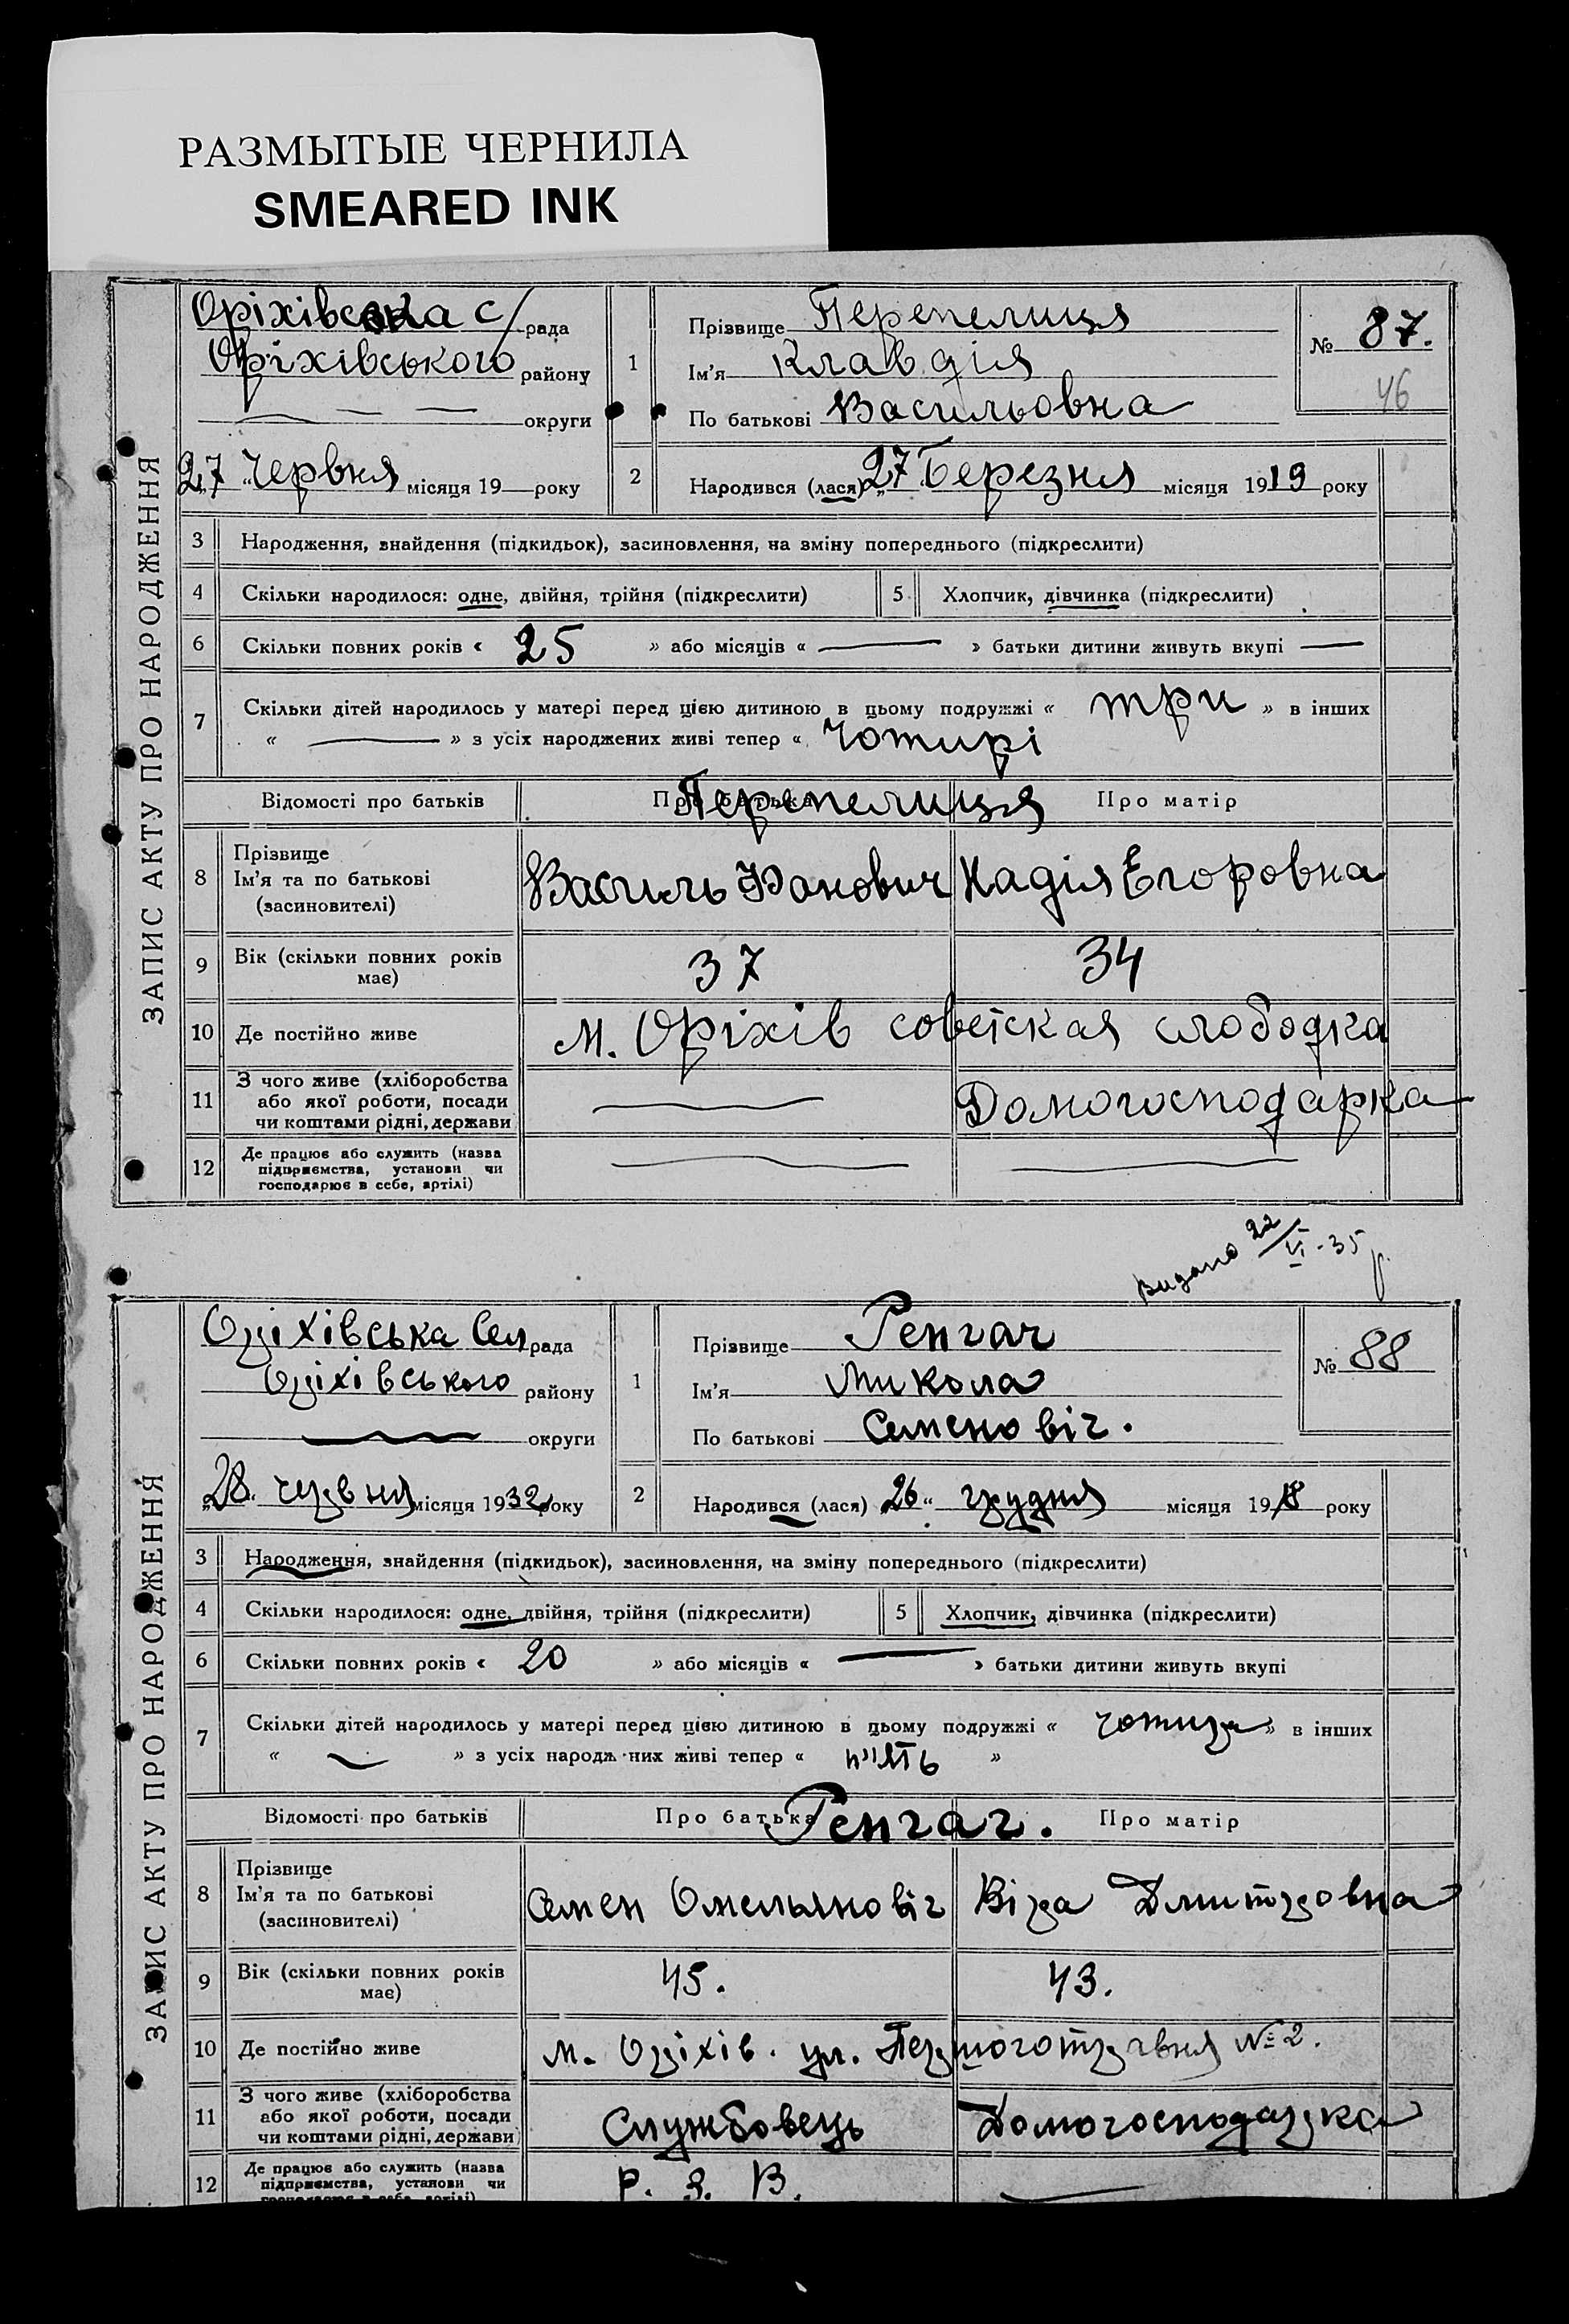 РАЗМЫТЫЕ ЧЕРНИЛА
SMEARED INK
ЗАПИС АКТУ ПРО НАРОДЖЕННЯ
Оріхівська с/рада
Оріхівського району
— — — округи
„27“ Червня місяця 19— року
1
Прізвище Перепелиця
Ім'я Клавдія
По батькові Васильовна
№ 87.
46
2 Народився (лася) „27“ Березня місяця 1919 року
3 Народження, знайдення (підкидьок), засиновлення, на зміну попереднього (підкреслити)
4 Скільки народилося: одне, двійня, трійня (підкреслити) 5 Хлопчик, дівчинка (підкреслити)
6 Скільки повних років « 25 » або місяців « — » батьки дитини живуть вкупі —
7 Скільки дітей народилось у матері перед цією дитиною в цьому подружжі « три » в інших
« — » з усіх народжених живі тепер « чотирі
Відомості про батьків Про батька Перепелиця Про матір
8 Прізвище
Ім'я та по батькові
(засиновителі)
Василь Фанович Надія Егоровна
9 Вік (скільки повних років має) 37 34
10 Де постійно живе м. Оріхів советская слободка
11 З чого живе (хліборобства
або якої роботи, посади
чи коштами рідні, держави
— Домогосподарка
12 Де працює або служить (назва
підприємства, установи чи
господарює в себе, артілі)
— —
Видано 22/VI-35 р.
ЗАПИС АКТУ ПРО НАРОДЖЕННЯ
Оріхівська Сел рада
Оріхівського району
— округи
„28“ червня місяця 1932 року
1
Прізвище Ренгач
Ім'я Микола
По батькові Семеновіч.
№ 88
2 Народився (лася) „26“ грудня місяця 1918 року
3 Народження, знайдення (підкидьок), засиновлення, на зміну попереднього (підкреслити)
4 Скільки народилося: одне, двійня, трійня (підкреслити) 5 Хлопчик, дівчинка (підкреслити)
6 Скільки повних років « 20 » або місяців « — » батьки дитини живуть вкупі
7 Скільки дітей народилось у матері перед цією дитиною в цьому подружжі « чотири » в інших
« — » з усіх народж·них живі тепер « п'ять »
Відомості про батьків Про батька Ренгач. Про матір
8 Прізвище
Ім'я та по батькові
(засиновителі)
Семен Омельяновіч Віра Дмитровна
9 Вік (скільки повних років має) 45. 43.
10 Де постійно живе м. Оріхів. ул. Першоготравня № 2.
11 З чого живе (хліборобства
або якої роботи, посади
чи коштами рідні, держави
Службовець Домогосподарка
12 Де працює або служить (назва
підприємства, установи чи
господарює в себе, артілі)
Р. З. В. —